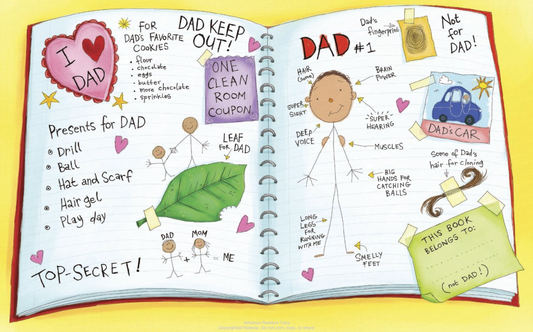 I
DAD
FOR
DAD'S FAVORITE
COOKIES
• flour
• chocolate
• eggs
• butter
• more chocolate
• sprinkles
DAD KEEP
OUT!
ONE
CLEAN
ROOM
COUPON
Presents for DAD
Drill
Ball
Hat and Scarf
Hair gel
Play day
LEAF
FOR DAD
DAD
MOM
+
=
ME
TOP-SECRET!
DAD #1
Dad's
fingerprint
Not
for
DAD!
HAIR
(some)
BRAIN
POWER
SUPER
SIGHT
"SUPER"
HEARING
DEEP
VOICE
MUSCLES
BIG
HANDS FOR
CATCHING
BALLS
LONG
LEGS
FOR
RUNNING
WITH ME
SMELLY
FEET
DAD'S CAR
Some of Dad's
hair for cloning
THIS BOOK
BELONGS TO:
(not DAD!)